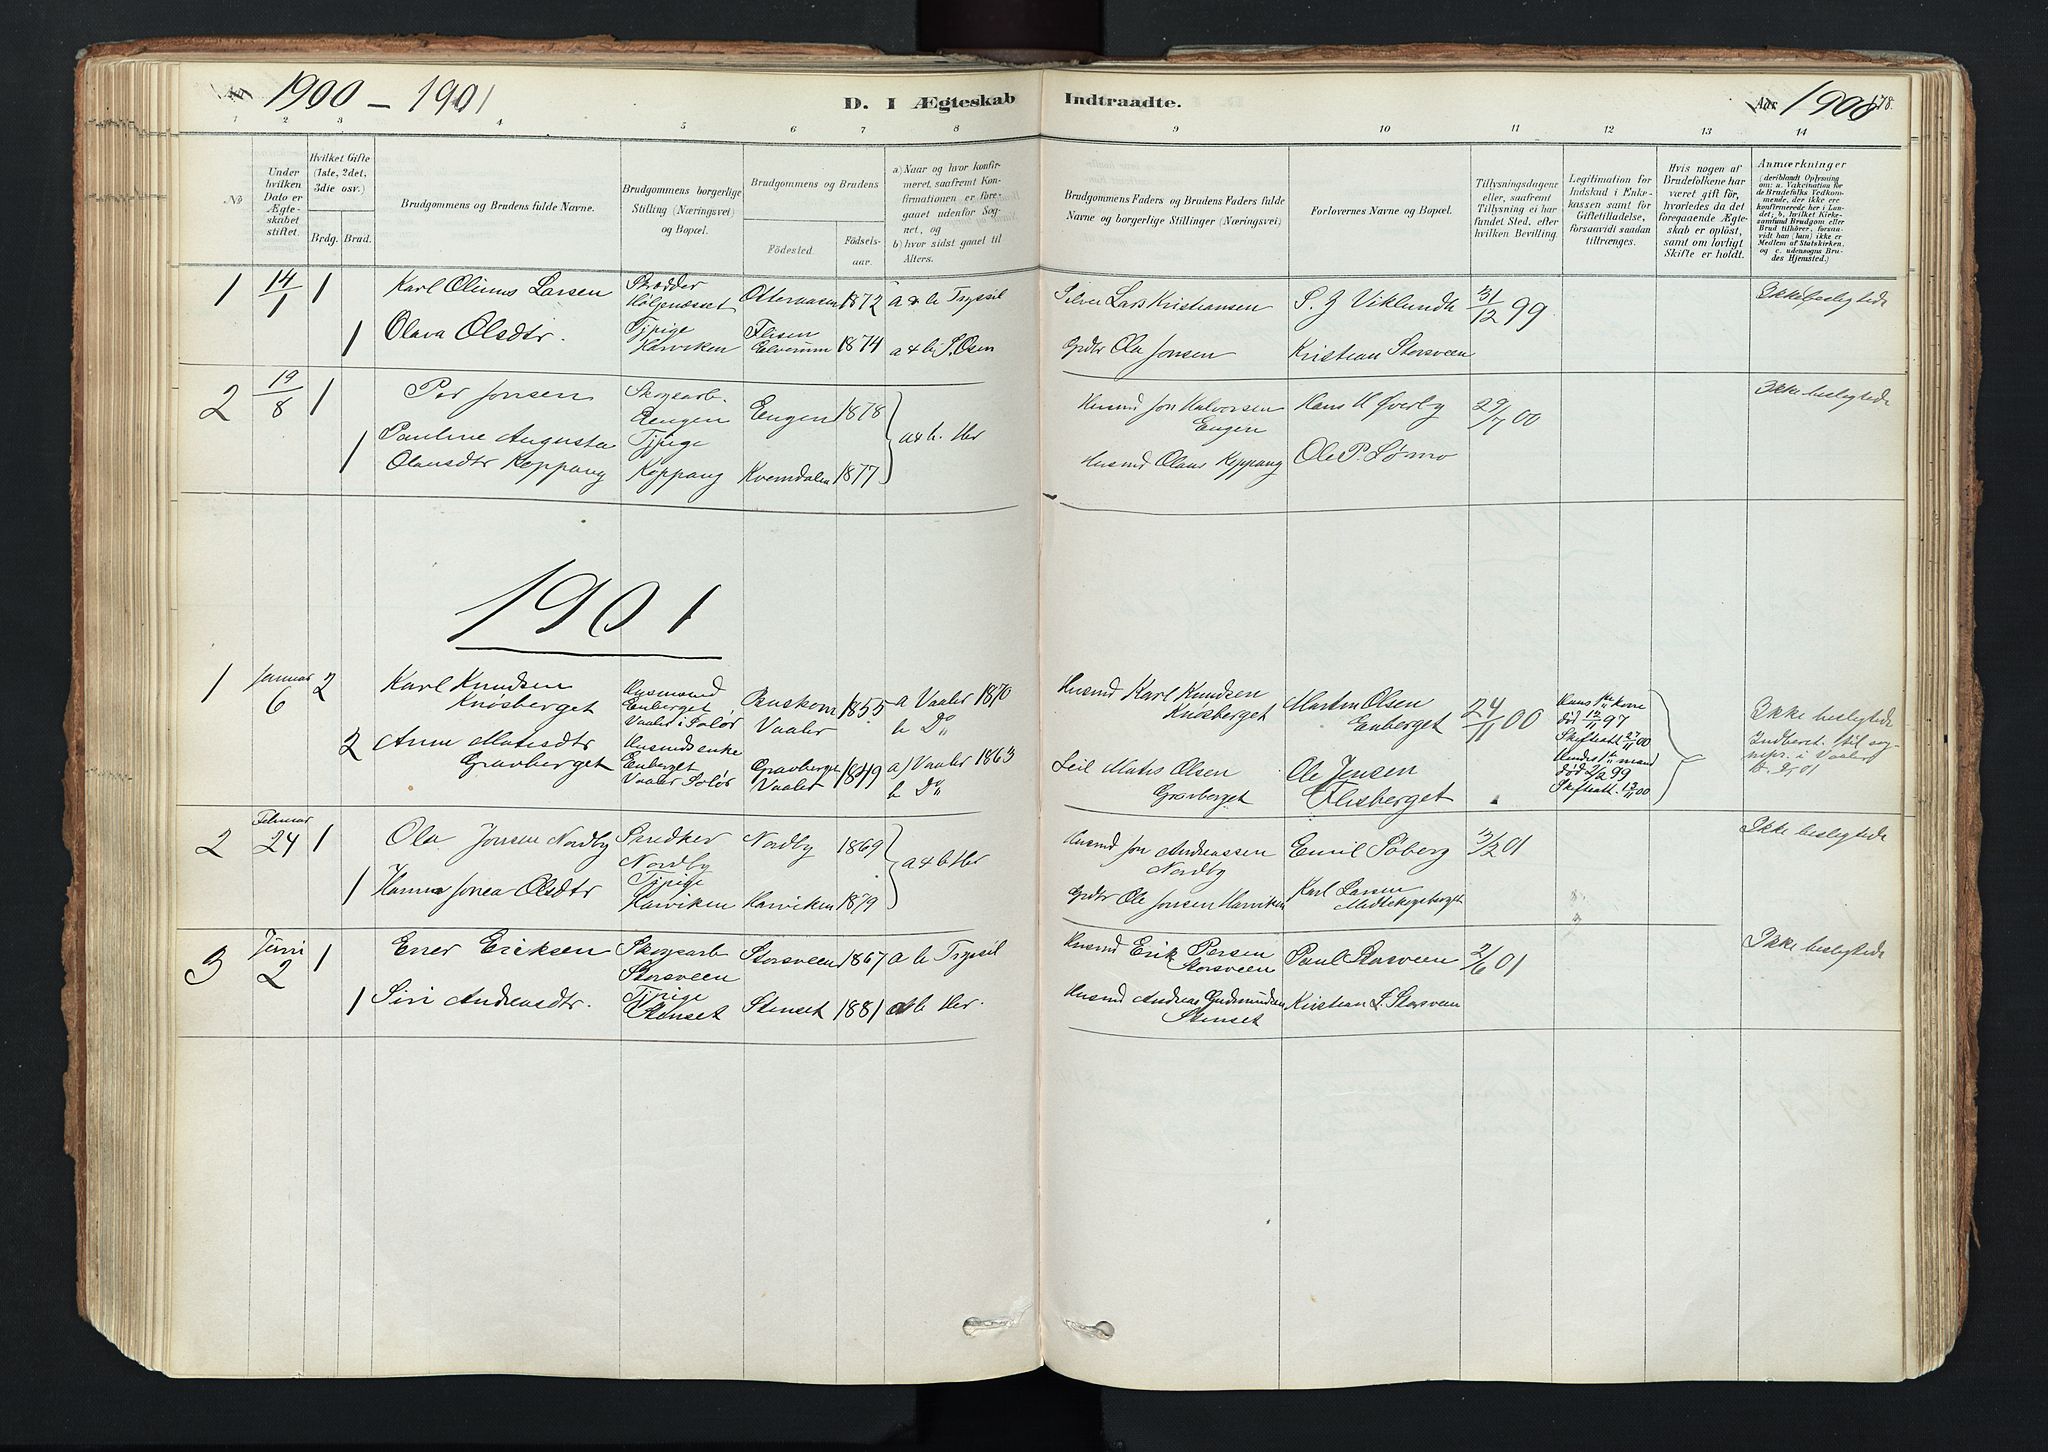 1900 – 1901
D. I Ægteskab Indtraadte.
Aar 1900
178.
1 2 3 4 5 6 7 8 9 10 11 12 13 14
No
Under hvilken Dato er Ægteskabet stiftet.
Hvilket Gifte (1ste, 2det, 3die osv.)
Brdg. Brud.
Brudgommens og Brudens fulde Navne.
Brudgommens borgerlige Stilling (Næringsvei) og Bopæl.
Brudgommens og Brudens
Fødested.
Fødselsaar.
a) Naar og hvor konfirmeret, saafremt Konfirmationen er foregaaet udenfor Sognet, og
b) hvor sidst gaaet til Alters.
Brudgommens Faders og Brudens Faders fulde Navne og borgerlige Stillinger (Næringsvei)
Forlovernes Navne og Bopæl.
Tillysningsdagene eller, saafremt Tillysning ei har fundet Sted, efter hvilken Bevilling.
Legitimation for Indskud i Enkekassen samt for Giftetilladelse, forsaavidt saadan tiltrænges.
Hvis nogen af Brudefolkene har været gift før, hvorledes da det foregaaende Ægteskab er opløst, samt om lovligt Skifte er holdt.
Anmærkninger (deriblandt Oplysning om: a. Vakcination for de Brudefolks Vedkommende, der ikke ere konfirmerede her i Landet; b. hvilket Kirkesamfund Brudgom eller Brud tilhører, forsaavidt han (hun) ikke er Medlem af Statskirken, og c. udensogns Brudes Hjemsted.)
1 14/1 1 Karl Olinus Larsen 1872 a & b Trysil Lars Kristiansen S. J. Viklundh 31/12 99 Ikke beslegtede
1 Olava Olsdtr. Tjpige Harviken Flisen Elverum 1874 a & b S. Osen Grdbr Ola Jonsen Kristian Storsveen
2 19/8 1 Per Jonsen Skogsarb. Eengen Eengen 1878 a & b. Her Husmd Jon Halvorsen Eengen Hans H Øverby 29/7 00 Ikke beslegtede
1 Pauline Augusta Olausdtr Koppang Tjpige Koppang Kvemdalen 1877 Husmd Olaus Koppang Ole P. Sørmo
1901
1 Januar 6 2 Karl Knudsen Knosberget Husmand Enberget, Vaaler i Solør Vaaler 1855 a Vaaler 1870 b Do Husmd Karl Knudsen Knosberget Martin Olsen Enberget 24/11 00 Hans 1ste kone død 12/11 97 Skifteatt. 27/11 00 Ikke beslegtede
2 Anne Matisdtr Gravberget Husmdsenke Enberget Vaaler Solør Gravberget Vaaler 1849 a) Vaaler 1863 b Do Matis Olsen Gravberget Ole Jensen Flisberget Hendes 1ste mand død 2/2 99 Skifteatt. 12/11 00 Indberet. til sognepr. i Vaaler
2 Februar 24 1 Ola Jonsen Nordby Nordby Nordby 1869 a & b Her Husmd Jon Andreassen Nordby Emil Søberg 3/2 01 Ikke beslegtede
1 Hanna Jonea Olsdtr Tjpige Harviken Harviken 1879 Grdbr Ole Jonsen Harviken Karl Larsen Midtskogsberget
3 Juni 2 1 Ener Eriksen Skogsarb Storsveen Storsveen 1867 a b Trysil Husmd Erik Persen Storsveen Paul Storsveen 2/6 01 Ikke beslegtede
1 Siri Andreasdtr. Tjpige Stenset Stenset 1881 a & b Her. Husmd Andreas Gudmundsen Stenset Kristian L. Storsveen